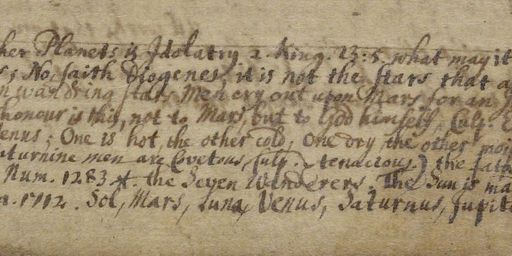 her Planets is Idolatry 2. King. 23:5, what may it
; No, saith Diogenes, it is not the stars that a
n wandring stars. Men cry out upon Mars for an
honour is this, not to Mars, but to God himself,
enus; One is hot, the other cold, One dry, the other moi
aturnine men are Covetous, (ulp:) tenacious) the
Num. 1283. the Seven Wanderers. The Sun is ma
. 1712. Sol, Mars, Luna, Venus, Saturnus, Jupit